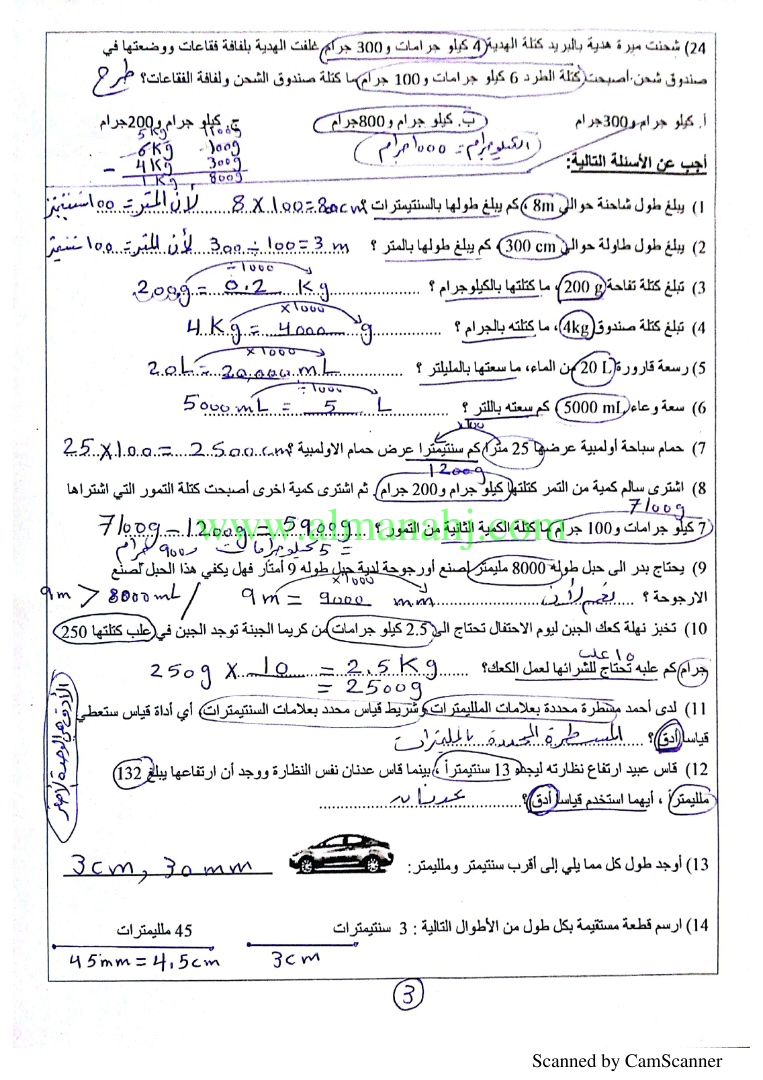 24) شحنت ميرة هدية بالبريد كتلة الهدية 4 كيلو جرامات و 300 جرام غلفت الهدية بلفافة فقاعات ووضعتها في
صندوق شحن أصبحت كتلة الطرد 6 كيلو جرامات و 100 جرام ما كتلة صندوق الشحن ولفافة الفقاعات؟ طرح
أ. كيلو جرام و300جرام ب. كيلو جرام و800جرام ج. كيلو جرام و200جرام
5Kg 1100g
6Kg 100g
- 4Kg 300g
1Kg 800g
الكيلوجرام = 1000 جرام
أجب عن الأسئلة التالية:
1) يبلغ طول شاحنة حوالي 8m ، كم يبلغ طولها بالسنتيمترات ؟ 8 X 100 = 800cm لأن المتر = 100 سنتيمتر
2) يبلغ طول طاولة حوالي 300 cm ، كم يبلغ طولها بالمتر ؟ 300 ÷ 100 = 3 m لأن المتر = 100 سنتيمتر
÷1000
3) تبلغ كتلة تفاحة 200 g ، ما كتلتها بالكيلوجرام ؟ 200g = 0.2 Kg
x1000
4) تبلغ كتلة صندوق 4kg ، ما كتلته بالجرام ؟ 4Kg = 4000 g
x1000
5) رسعة قارورة 20 L من الماء، ما سعتها بالمليلتر ؟ 20L = 20,000 mL
÷1000
6) سعة وعاء 5000 mL كم سعته باللتر ؟ 5000mL = 5 L
x100
7) حمام سباحة أولمبية عرضها 25 مترا كم سنتيمترا عرض حمام الاولمبية ؟ 25 X 100 = 2500cm
1200g
8) اشترى سالم كمية من التمر كتلتها كيلو جرام و 200 جرام. ثم اشترى كمية اخرى أصبحت كتلة التمور التي اشتراها
7100g
7 كيلو جرامات و 100 جرام ما كتلة الكمية الثانية من التمور 7100g - 1200g = 5900g
www.almanahj.com
= 5 كيلوجرامات و 900 جرام
9) يحتاج بدر الى حبل طوله 8000 مليمتر لصنع أورجوحة لدية حبل طوله 9 أمتار فهل يكفي هذا الحبل لصنع
x1000
الارجوحة ؟ نعم لأن 9m = 9000 mm / 9m > 8000mL
10) تخبز نهلة كعك الجبن ليوم الاحتفال تحتاج الى 2.5 كيلو جرامات من كريما الجبنة توجد الجبن في علب كتلتها 250
10 علب
جرام كم علبه تحتاج للشرائها لعمل الكعك؟ 250g X 10 = 2.5Kg
= 2500g
11) لدى أحمد مسطرة محددة بعلامات الملليمترات وشريط قياس محدد بعلامات السنتيمترات أي أداة قياس ستعطي
قياسا أدق ؟ المسطرة المحددة بالمليمترات
الأدق هي الوحدة الأصغر
12) قاس عبيد ارتفاع نظارته ليجدو 13 سنتيمترأ ، بينما قاس عدنان نفس النظارة ووجد أن ارتفاعها يبلغ 132
ملليمتراً ، أيهما استخدم قياسا أدق ؟ عدنان
13) أوجد طول كل مما يلي إلى أقرب سنتيمتر ومليمتر: 3cm , 30mm
14) ارسم قطعة مستقيمة بكل طول من الأطوال التالية : 3 سنتيمترات 45 ملليمترات
3cm 45mm = 4,5cm
3
Scanned by CamScanner